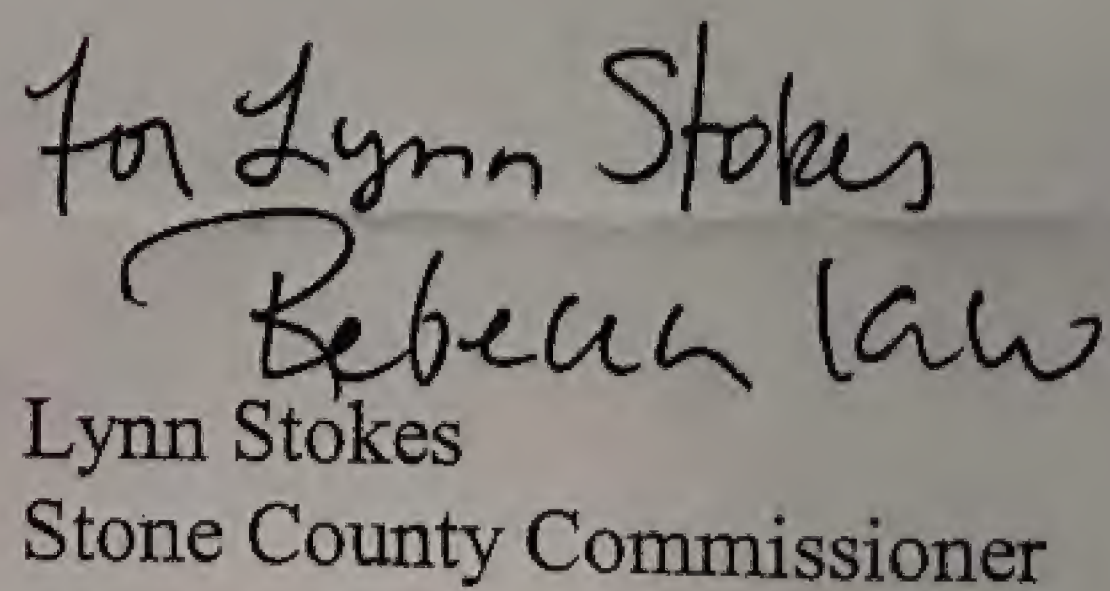 For Lynn Stokes
Rebecca Law
Lynn Stokes
Stone County Commissioner